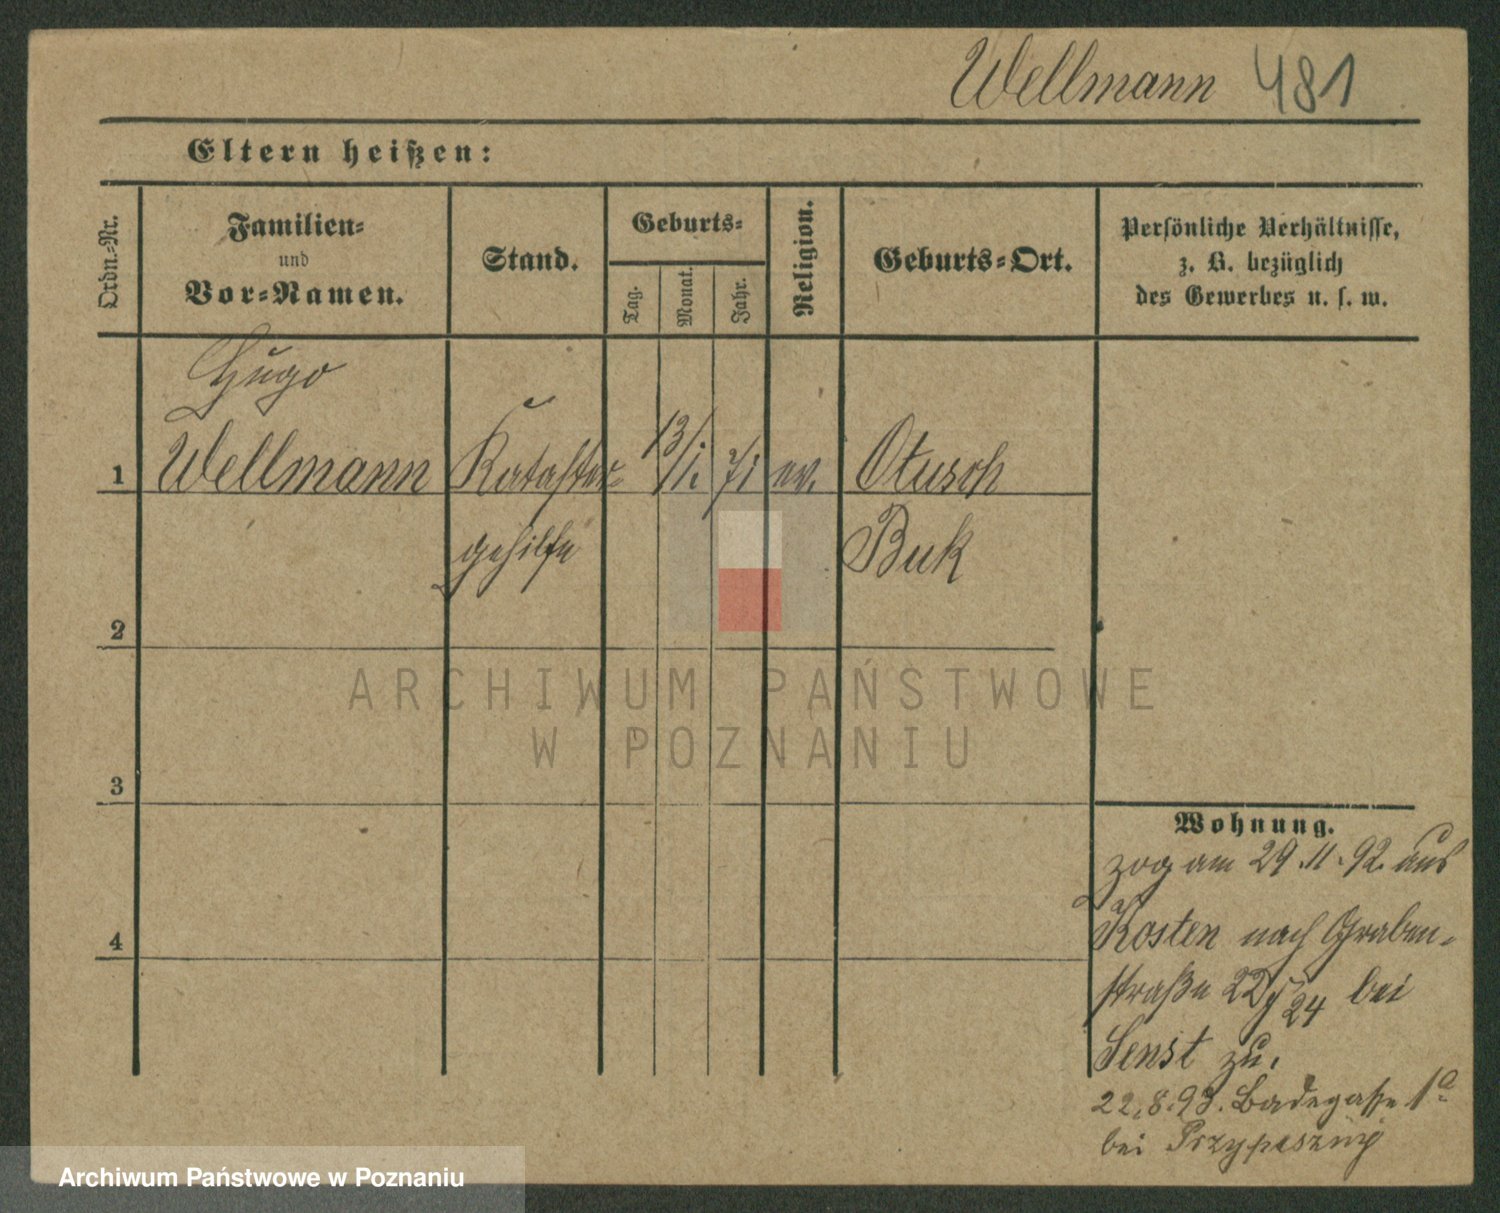 Wellmann 481
Eltern heißen:
Ordn.-Nr.
Familien-
und
Vor-Namen.
Stand.
Geburts-
Tag.
Monat.
Jahr.
Religion.
Geburts-Ort.
Persönliche Verhältnisse,
z. B. bezüglich
des Gewerbes u. s. w.
Hugo
1 Wellmann Kataster- 13/1. 71 ev. Otusch
gehilfe Buk
2
3
4
Wohnung.
zog am 29.11.92. aus
Kosten nach Graben-
straße 22/24 bei
Senst zu.
22.8.93. Badegasse 1a
bei
ARCHIWUM PAŃSTWOWE
W POZNANIU
Archiwum Państwowe w Poznaniu